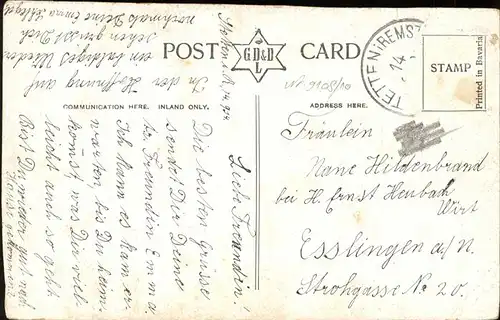 POST CARD
G.D&D
L
STAMP
Printed in Bavaria
COMMUNICATION HERE. INLAND ONLY.
ADDRESS HERE.
-14-
Fräulein
Nane Hildenbrand
bei H. Ernst Heubach
Wirt
Esslingen a/N.
Strohgasse No 20.
Liebe Freundin!
Die besten Grüsse
sendet Dir Deine
Freundin Emma
Ich kann es kaum er
warten, bis Du heim
komst, was Dir viel-
leicht auch so geht
Bist Du wieder gut nach
Hause gekommen
In der Hoffnung auf
ein baldiges Wieder
sehen grüsst Dich
nochmals Deine Emma